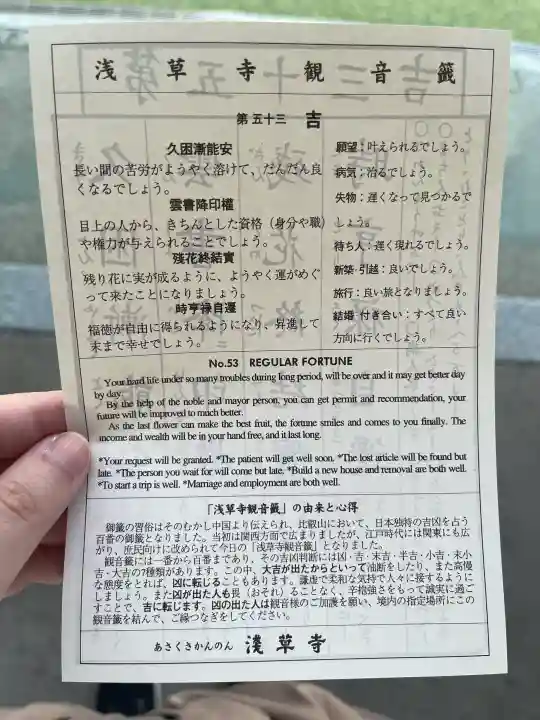 浅草寺観音籤
第五十三 吉
久困漸能安
長い間の苦労がようやく溶けて、だんだん良
くなるでしょう。
雲書降印權
目上の人から、きちんとした資格（身分や職）
や権力が与えられることでしょう。
殘花終結實
残り花に実が成るように、ようやく運がめぐ
って来たことになりましょう。
時亨祿自遷
福徳が自由に得られるようになり、昇進して
末まで幸せでしょう。
願望：叶えられるでしょう。
病気：治るでしょう。
失物：遅くなって見つかるで
しょう。
待ち人：遅く現れるでしょう。
新築・引越：良いでしょう。
旅行：良い旅となりましょう。
結婚・付き合い：すべて良い
方向に行くでしょう。
No.53 REGULAR FORTUNE
Your hard life under so many troubles during long period, will be over and it may get better day
by day.
By the help of the noble and mayor person, you can get permit and recommendation, your
future will be improved to much better.
As the last flower can make the best fruit, the fortune smiles and comes to you finally. The
income and wealth will be in your hand free, and it last long.
*Your request will be granted. *The patient will get well soon. *The lost article will be found but
late. *The person you wait for will come but late. *Build a new house and removal are both well.
*To start a trip is well. *Marriage and employment are both well.
「浅草寺観音籤」の由来と心得
御籤の習俗はそのむかし中国より伝えられ、比叡山において、日本独特の吉凶を占う
百番の御籤となりました。当初は関西方面で広まりましたが、江戸時代には関東にも広
がり、庶民向けに改められて今日の「浅草寺観音籤」となりました。
観音籤には一番から百番まであり、その吉凶判断には凶・吉・末吉・半吉・小吉・末小
吉・大吉の7種類があります。この中、大吉が出たからといって油断をしたり、また高慢
な態度をとれば、凶に転じることもあります。謙虚で柔和な気持で人々に接するようにし
ましょう。また凶が出た人も畏（おそれ）ることなく、辛抱強さをもって誠実に過ご
すことで、吉に転じます。凶の出た人は観音様のご加護を願い、境内の指定場所にこの
観音籤を結んで、ご縁つなぎをしてください。
あさくさかんのん 淺草寺